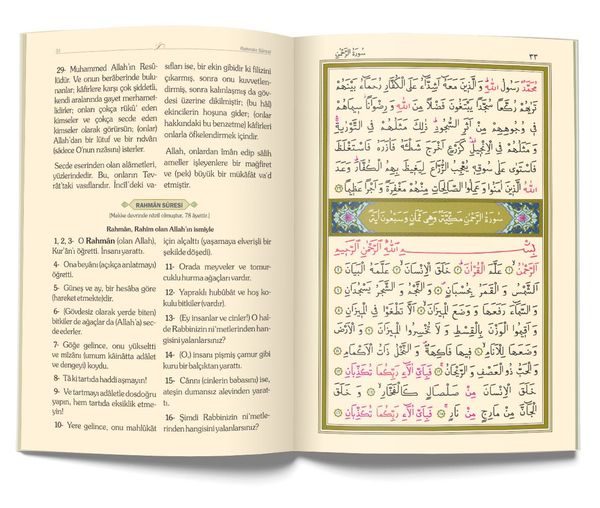 Rahmân Sûresi
29- Muhammed Allah'ın Resû-
lüdür. Ve onun berâberinde bulu-
nanlar; kâfirlere karşı çok şiddetli,
kendi aralarında gayet merhamet-
lidirler; onları çokça rükû' eden
kimseler ve çokça secde eden
kimseler olarak görürsün; (onlar)
Allah'dan bir lütuf ve bir rıdvân
(sâdece O'nun rızâsını) isterler.
Secde eserinden olan alâmetleri,
yüzlerindedir. Bu, onların Tev-
rât'taki vasıflarıdır. İncîl'deki va-
sıfları ise, bir ekin gibidir ki filizini
çıkarmış, sonra onu kuvvetlen-
dirmiş, sonra kalınlaşmış da göv-
desi üzerine dikilmiştir; (bu hâl)
ekincilerin hoşuna gider; (onlar
hakkındaki bu benzetme) kâfirleri
onlarla öfkelendirmek içindir.
Allah, onlardan îmân edip sâlih
ameller işleyenlere bir mağfiret
ve (pek) büyük bir mükâfât va'd
etmiştir.
RAHMÂN SÛRESİ
(Mekke devrinde nâzil olmuştur, 78 âyettir.)
Rahmân, Rahîm olan Allah'ın ismiyle
1, 2, 3- O Rahmân (olan Allah),
Kur'ân'ı öğretti. İnsanı yarattı.
4- Ona beyânı (açıkça anlatmayı)
öğretti.
5- Güneş ve ay, bir hesâba göre
(hareket etmekte)dir.
6- (Gövdesiz olarak yerde biten)
bitkiler de ağaçlar da (Allah'a) sec-
de ederler.
7- Göğe gelince, onu yükseltti
ve mîzânı (umum kâinâtta adâlet
ve dengeyi) koydu.
8- Tâ ki tartıda haddi aşmayın!
9- Ve tartmayı adâletle dosdoğru
yapın, hem tartıda eksiklik etme-
yin!
10- Yere gelince, onu mahlûkât
için alçalttı (yaşamaya elverişli bir
şekilde döşedi).
11- Orada meyveler ve tomur-
cuklu hurma ağaçları vardır.
12- Yapraklı hubûbât ve hoş ko-
kulu bitkiler (vardır).
13- (Ey insanlar ve cinler!) O hal-
de Rabbinizin ni'metlerinden han-
gisini yalanlarsınız?
14- (O,) insanı pişmiş çamur gibi
kuru bir balçıktan yarattı.
15- Cânnı (cinlerin babasını) ise,
ateşin dumansız alevinden yarat-
tı.
16- Şimdi Rabbinizin ni'metle-
rinden hangisini yalanlarsınız?
سُورَةُ الرَّحْمٰنِ
٣٣
مُحَمَّدٌ رَسُولُ اللّٰهِ وَالَّذِينَ مَعَهُ أَشِدَّاءُ عَلَى الْكُفَّارِ رُحَمَاءُ بَيْنَهُمْ
تَرٰيهُمْ رُكَّعًا سُجَّدًا يَبْتَغُونَ فَضْلًا مِنَ اللّٰهِ وَرِضْوَانًا سِيمَاهُمْ
فِي وُجُوهِهِمْ مِنْ أَثَرِ السُّجُودِ ذٰلِكَ مَثَلُهُمْ فِي التَّوْرٰيةِ
وَمَثَلُهُمْ فِي الْإِنْجِيلِ كَزَرْعٍ أَخْرَجَ شَطْأَهُ فَآزَرَهُ فَاسْتَغْلَظَ
فَاسْتَوٰى عَلٰى سُوقِهِ يُعْجِبُ الزُّرَّاعَ لِيَغِيظَ بِهِمُ الْكُفَّارَ وَعَدَ
اللّٰهُ الَّذِينَ آمَنُوا وَعَمِلُوا الصَّالِحَاتِ مِنْهُمْ مَغْفِرَةً وَأَجْرًا عَظِيمًا ٢٩
سُورَةُ الرَّحْمٰنِ مَكِّيَّةٌ وَهِيَ ثَمَانٍ وَسَبْعُونَ آيَةً
بِسْمِ اللّٰهِ الرَّحْمٰنِ الرَّحِيمِ
الرَّحْمٰنُ ١ عَلَّمَ الْقُرْآنَ ٢ خَلَقَ الْإِنْسَانَ ٣ عَلَّمَهُ الْبَيَانَ ٤
الشَّمْسُ وَالْقَمَرُ بِحُسْبَانٍ ٥ وَالنَّجْمُ وَالشَّجَرُ يَسْجُدَانِ ٦
وَالسَّمَاءَ رَفَعَهَا وَوَضَعَ الْمِيزَانَ ٧ أَلَّا تَطْغَوْا فِي الْمِيزَانِ ٨
وَأَقِيمُوا الْوَزْنَ بِالْقِسْطِ وَلَا تُخْسِرُوا الْمِيزَانَ ٩ وَالْأَرْضَ
وَضَعَهَا لِلْأَنَامِ ١٠ فِيهَا فَاكِهَةٌ وَالنَّخْلُ ذَاتُ الْأَكْمَامِ ١١
وَالْحَبُّ ذُو الْعَصْفِ وَالرَّيْحَانُ ١٢ فَبِأَيِّ آلَاءِ رَبِّكُمَا تُكَذِّبَانِ ١٣
خَلَقَ الْإِنْسَانَ مِنْ صَلْصَالٍ كَالْفَخَّارِ ١٤ وَخَلَقَ
الْجَانَّ مِنْ مَارِجٍ مِنْ نَارٍ ١٥ فَبِأَيِّ آلَاءِ رَبِّكُمَا تُكَذِّبَانِ ١٦